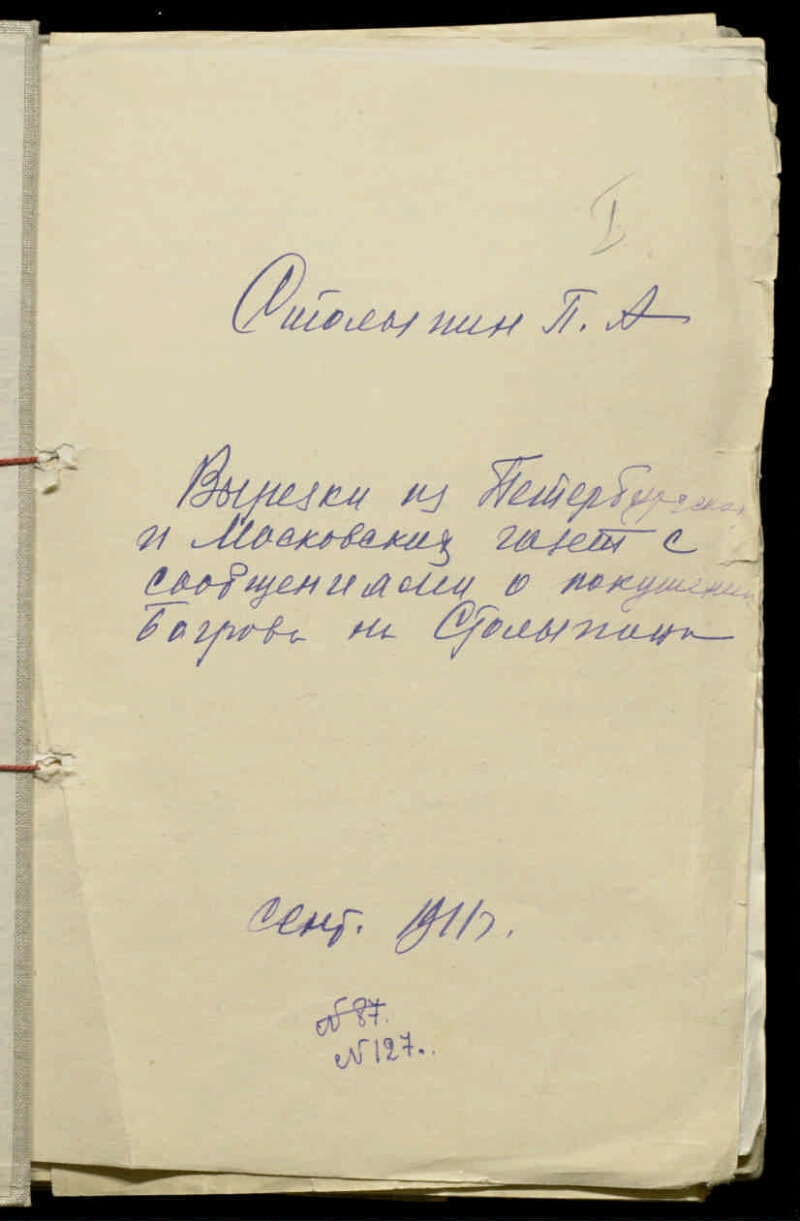 I
Столыпин П. А
Вырезки из Петербургских
и Московских газет с
сообщениями о покушении
Багрова на Столыпина
сент. 1911 г.
№ 87.
№ 127..